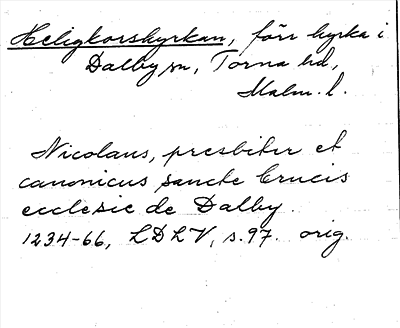 Heligkorskyrkan, förr kyrka i
Dalby sn, Torna hd,
Malm. l.
Nicolaus, presbiter et
canonicus sancte Crucis
ecclesie de Dalby.
1234-66, LDLV, s.97. orig.